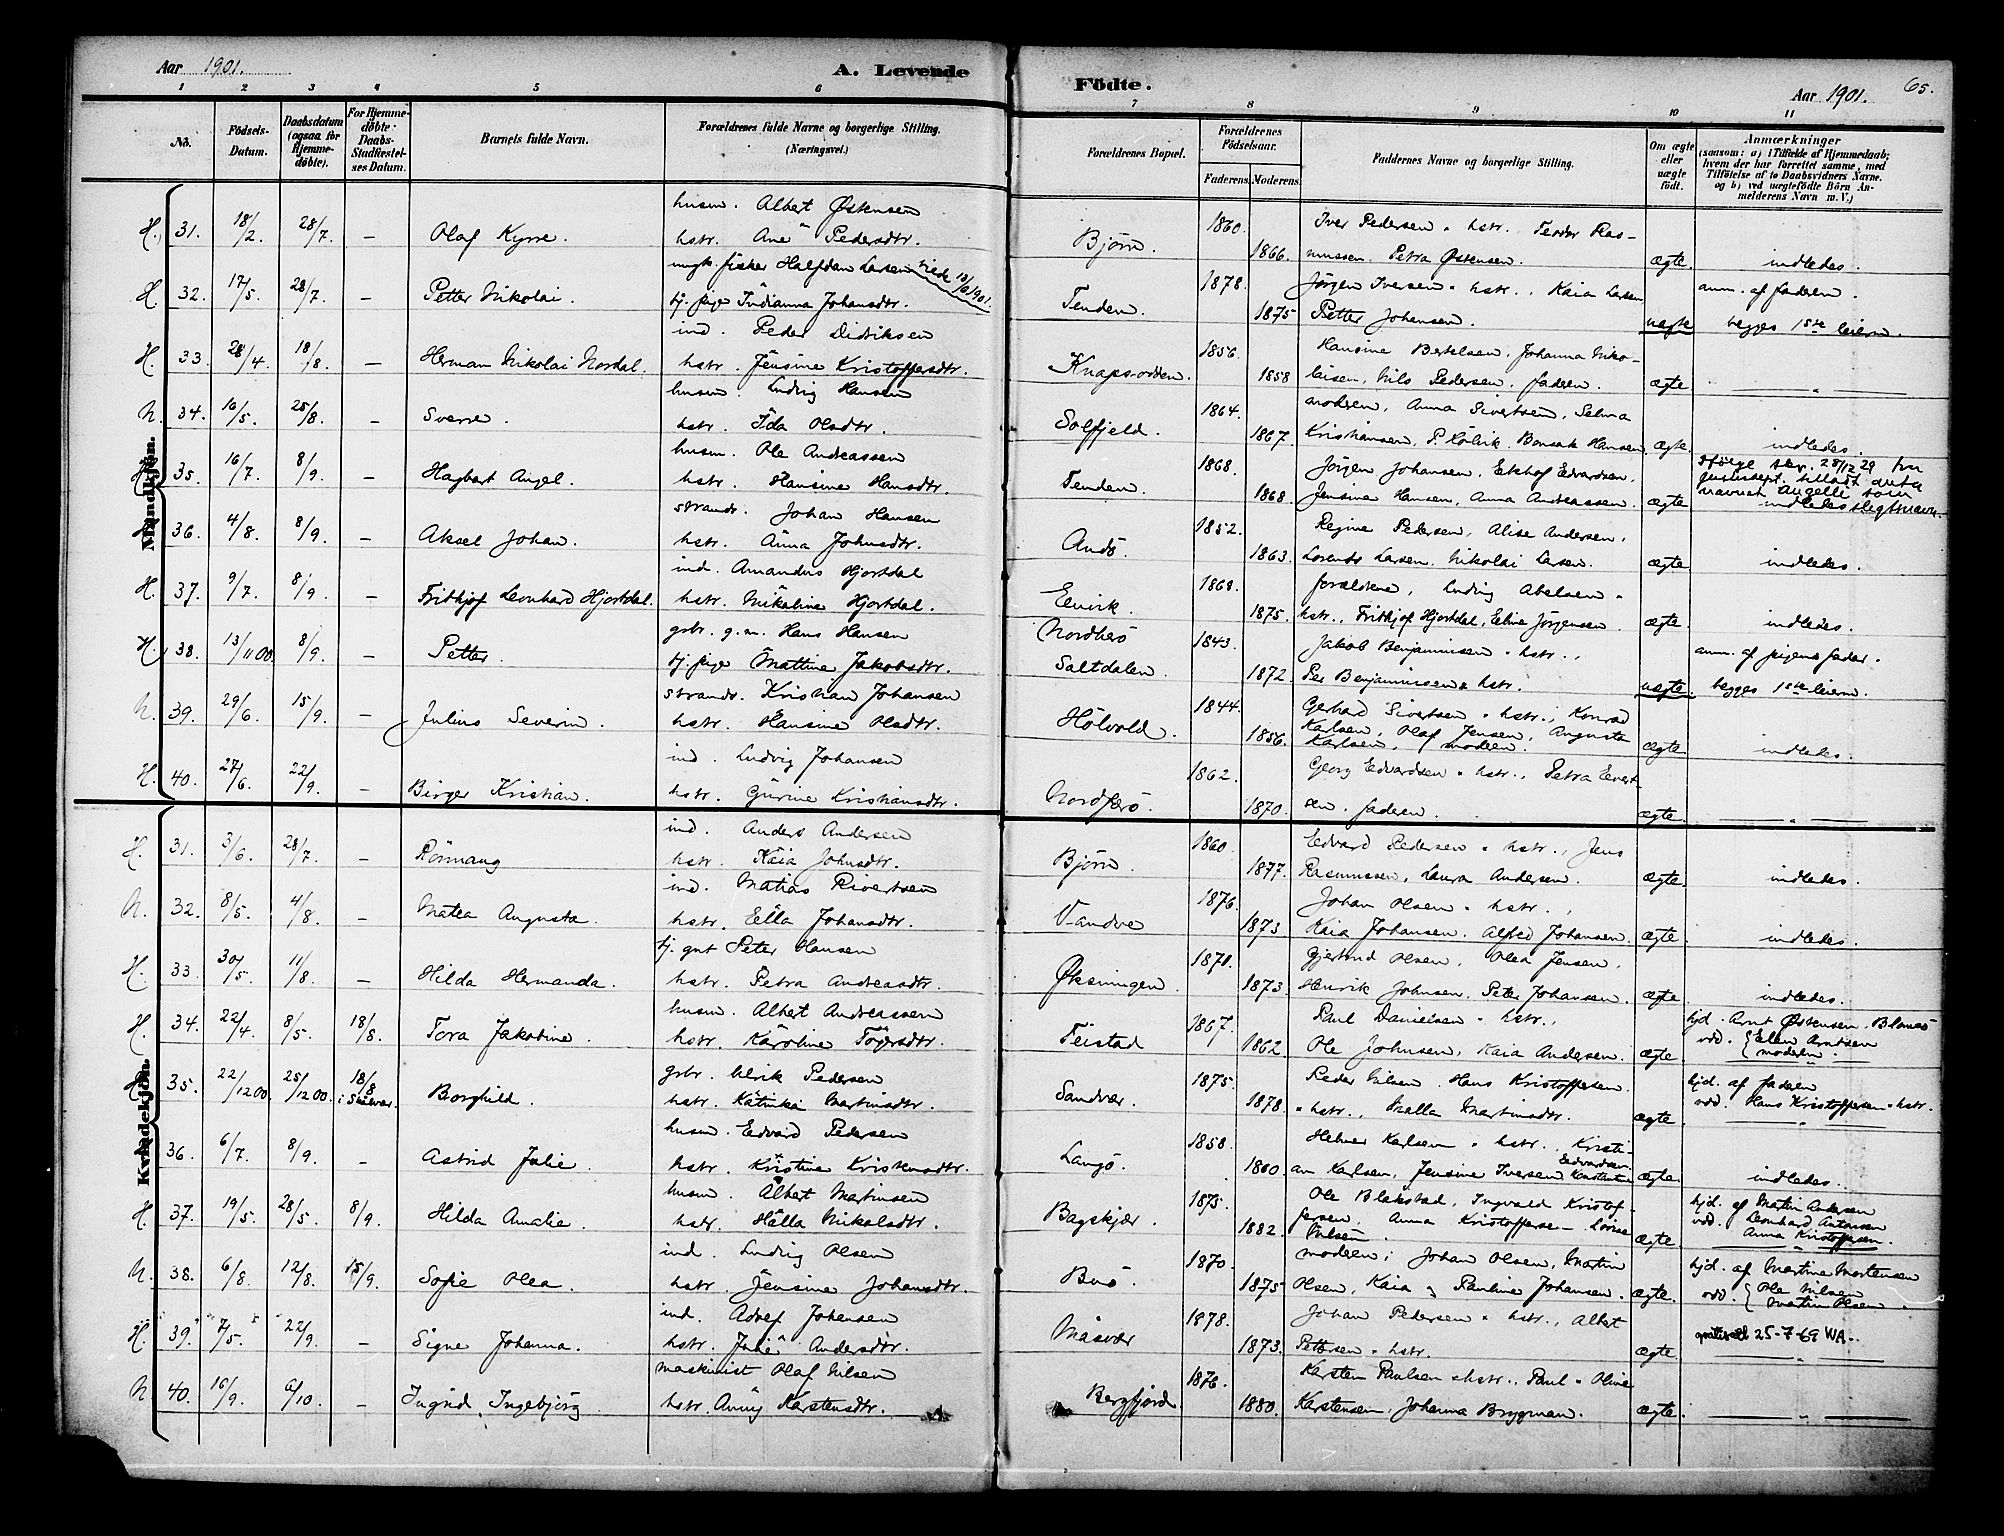 Aar 1901.
A. Levende Födte.
Aar 1901.
65.
1 2 3 4 5 6 7 8 9 10 11
No. Födsels-Datum. Daabsdatum (ogsaa for Hjemmedöbte). For Hjemmedöbte: Daabs-Stadfæstelses Datum. Barnets fulde Navn. Forældrenes fulde Navne og borgerlige Stilling. (Næringsvei.) Forældrenes Bopæl. Forældrenes Födselsaar. Faderens. Moderens. Faddernes Navne og borgerlige Stilling. Om ægte eller uægte födt. Anmærkninger (saasom: a) i Tilfælde af Hjemmedaab; hvem der har forrettet samme, med Tilföielse af to Daabsvidners Navne. og b) ved uægtefödte Börn Anmelderens Navn m. V.)
Mandkjön.
husm. Albert Østensen 1860. Iver Pedersen " hstr. Teodor Ras-
H. 31. 18/2. 28/7. – Olaf Kyrre. hstr. Ane Pedersdtr. Bjørn. 1866. mussen, Petra Østensen. ægte. indledes.
ungk. fisker Halfdan Larsen 1878. Jörgen Iversen " hstr., Kaia Larsen anm. af faderen.
H. 32. 17/5. 28/7. – Petter Nikolai. tj. pige Indianna Johansdtr. Tenden. 1875 Petter Johansen. uægte begges 1ste leierm.
ind. Peder Didriksen 1856. Hansine Bertelsen, Johanna Niko-
H. 33. 28/4 18/8. – Herman Nikolai Nordal. hstr. Jensine Kristoffersdtr. Knapsodden. 1858 laisen, Nils Pedersen, faderen. ægte "
husm. Ludvig Hansen 1864. moderen, Anna Sivertsen, Selma
N. 34. 16/5. 25/8. – Sverre. hstr. Ida Olsdtr. Solfjeld. 1867. Kristiansen, Bonsak Hansen ægte. indledes.
husm. Ole Andreassen 1868. Jörgen Johansen, Edvardsen,
35. 16/7. 8/9. – Hagbart Angel. hstr. Hansine Hansdtr. Tenden. 1868. Jensine Hansen, Anna Andreassen. ægte indledes
strands. Johan Hansen 1852. Regine Pedersen, Alise Andersen,
36. 4/8. 8/9. – Aksel Johan. hstr. Anna Johnsdtr. Andö. 1863. Lorents Larsen. Nikolai Larsen. ægte indledes.
ind. Amandus Hjortdal 1868. forældrene, Ludvig Abelsen "
H. 37. 9/7. 8/9. – Fridthjof Leonhard Hjortdal. hstr. Nikoline Hjortdal. 1875. hstr., Fridthjof Hjortdal, Eline Jörgensen. ægte. indledes.
gbr. g.m. Hans Hansen Nordherö 1843. Jakob Benjaminsen " hstr., anm. af pigens fader.
H. 38. 13/11 00. 8/9. – Petter. tj. pige Mattine Jakobsdtr. Saltdalen. 1872. Per Benjaminsen " hstr. uægte. begges 1ste leierm.
strands. Kristian Johansen 1844. Gerhard Sivertsen " hstr., Konrad
N. 39. 29/6. 15/9. – Julius Severin. hstr. Hansine Olsdtr. Hölvold. 1856. Karlsen, Olaf Jensen, Augusta Karlsen, moderen. ægte indledes.
ind. Ludvig Johansen 1862. Georg Edvardsen " hstr., Petra Evert-
H. 40. 27/6. 22/9. – Birger Kristian. hstr. Gurine Kristiansdtr. 1870. sen, faderen. ægte. "
Kvindekjön.
ind. Anders Andersen 1860. Edvard Pedersen " hstr., Jens
H. 31. 3/6. 28/7. – Rönnaug hstr. Kaia Johnsdtr. Bjørn. 1877. Rasmussen, Laura Andersen. ægte. indledes.
ind. Matias Sivertsen 1876. Johan Olsen " hstr.,
N. 32. 8/5. 4/8. – Matea Augusta. hstr. Ella Johansdtr. Vandve 1873. Kaia Johansen. Alfred Johansen. ægte. indledes.
tj. gut Peter Hansen 1871. Gjertrud Olsen, Olea Jensen,
H. 33. 30/5. 11/8. – Hilda Hermanda. hstr. Petra Andreasdtr. Øksningen. 1873. Henrik Johnsen. Peter Johansen. ægte. indledes.
husm. Albert Andreassen 1867. Paul Danielsen " hstr., hjd. Arnt Østensen,
H. 34. 22/4. 8/5. 18/8. Tora Jakobine. hstr. Karoline Tögersdtr. Feistad 1862. Ole Johnsen, Kaia Andersen. ægte. vdd. Ellen Arntsen moderen.
gbr. Ulrik Pedersen 1875. Peder Nilsen. Hans Kristoffersen. hjd. af faderen
35. 22/12 00. 25/12 00. 18/8 Borghild. hstr. Katinka Martinsdtr. Sandvær. 1878. " hstr., Malla Martinsdtr. ægte. vdd. Hans Kristoffersen " hstr.
husm. Edvard Pedersen 1858. Helmer Karlsen " hstr., Kristi-
36. 6/7. 8/9. – Astrid Julie. hstr. Kristine Kristensdtr. Langö. 1860 an Karlsen, Jensine Iversen ægte. indledes.
husm. Albert Martinsen 1875. Ole Blakstad, Ingvald Kristof- hjd. af Martin Andersen
H. 37. 19/5. 28/5. 8/9. Hilda Amalie. hstr. Hålla Nikolaidtr. Bagskjær. 1882 fersen, Anna Kristoffersen, Lovise Nilsen. ægte. vdd. Leonhard Antonsen Anna Kristoffersen.
ind. Ludvig Olsen 1870. moderen, Johan Olsen, Martin hjd. af Martine Mortensen
N. 38. 6/8. 12/8. 15/9. Sofie Olea. hstr. Jensine Johansdtr. Buö. 1875 Olsen, Kaia og Pauline Johansen. ægte. vdd. Ole Nilsen Martin Olsen.
ind. Adolf Johansen 1878. Johan Pedersen " hstr., Albert
H. 39. 7/5. 22/9. – Signe Johanna. hstr. Julie Andersdtr. Måsvær 1873. Pettersen " hstr. ægte. 25-7-69 WA.
maskinist Olaf Nilsen 1876. Karsten Paulsen " hstr., Paul " Oline
N. 40. 16/9. 6/10. – Ingrid Ingebjörg hstr. Anny Karstensdtr. Bergfjord. 1880. Karstensen, Johanna Brygman. ægte. "